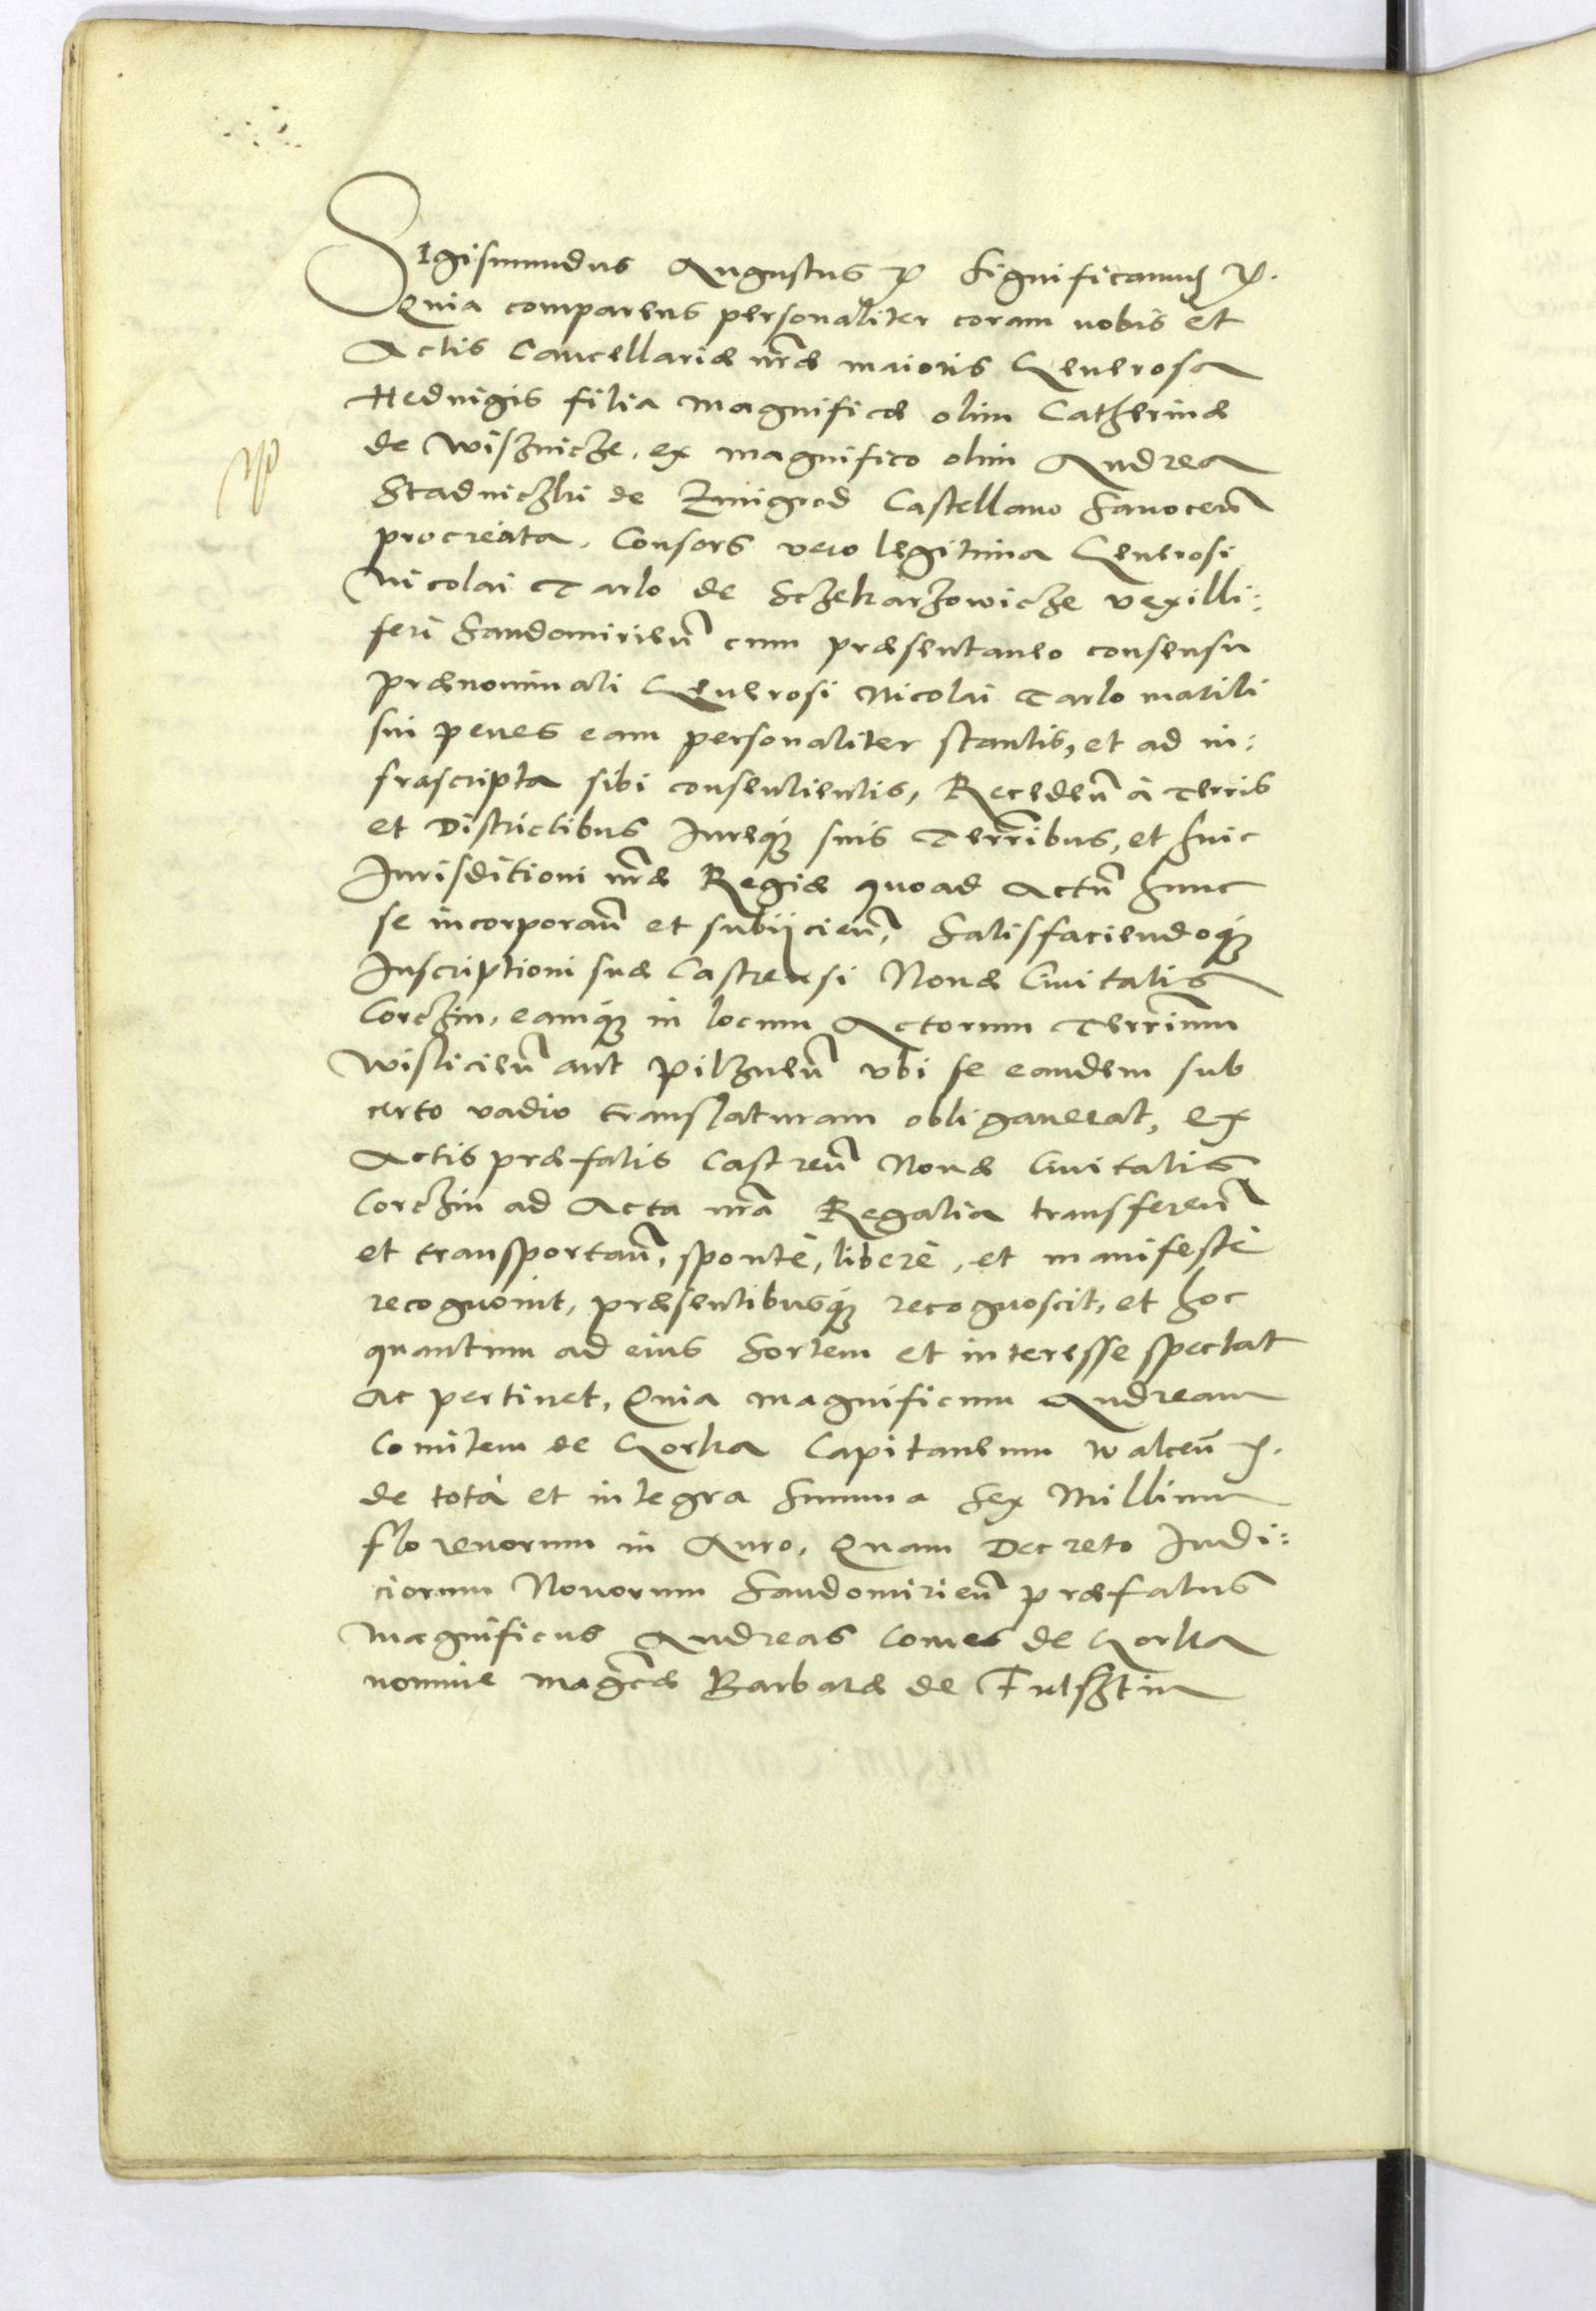 Sigismundus Augustus etc Significamus etc.
Quia comparens personaliter coram nobis et
Actis Cancellariæ nr̃æ maioris Generosa
Heduigis filia magnificæ olim Catherinæ
de Wisznicze, ex magnifico olim Andrea
Stadniczki de Zmigrod Castellano Sanoceñ
procreata, Consors vero legitima Generosi
Nicolai Tarlo de Sczekarzowicze vexilli:
feri Sandomirieñ cum præsentaneo consensu
prænominati Generosi Nicolai Tarlo mariti
sui penes eam personaliter stantis, et ad in:
frascripta sibi consentientis, Recedeñ à Terris
et Districtibus Iureq́ue suis Terrr̃ibus, et huic
Iurisditioni nr̃æ Regiæ quoad Actũ hunc
se incorporañ et subijcieñ, Satisfaciendoq́ue
Inscriptioni suæ Castrensi Nouæ Ciuitatis
Corczin, eamq́ue in locum Actorum Terr̃ium
Wisliciеñ aut Pilzneñ vbi se eandem sub
certo vadio translaturam obligauerat, ex
Actis præfatis Castreñ Nouæ Ciuitatis
Corczin ad Acta nr̃a Regalia transfereñ
et transportañ, spontè, liberè, et manifestè
recognouit, præsentibusq́ue recognoscit, et hoc
quantum ad eius Sortem et interesse spectat
ac pertinet, Quia magnificum Andream
Comitem de Gorka Capitaneum Walceñ etc.
de tota et integra Summa Sex Millium
florenorum in Auro, Quam Decreto Iudi:
ciorum Nouorum Sandomirieñ præfatus
Magnificus Andreas Comes de Gorka
nomine mag̃cæ Barbaræ de Fulsztin